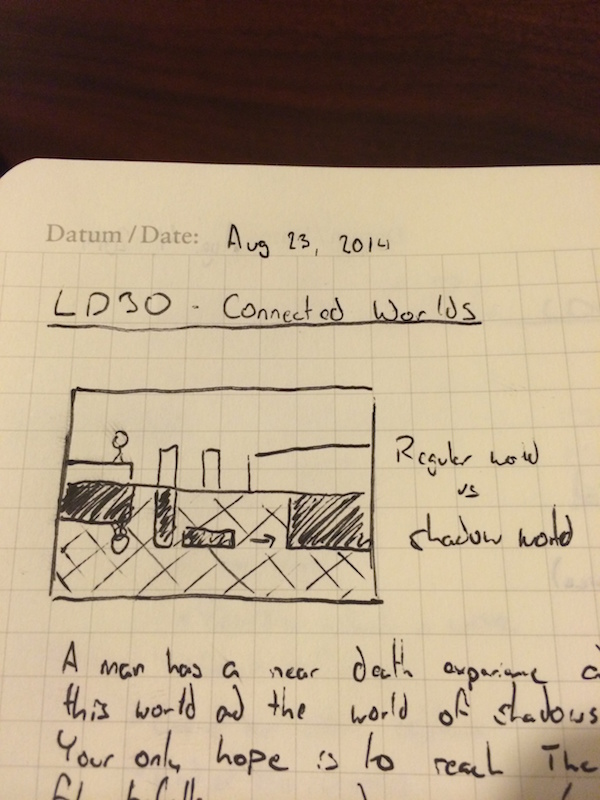 Datum / Date: Aug 23, 2014
LD30 - Connected Worlds
Regular world
vs
shadow world
A man has a near death experience
this world and the world of shadows
Your only hope is to reach The